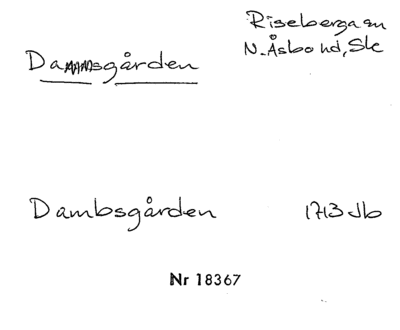 Riseberga sn
N. Åsbo hd, Sk
Dammsgården
Dambsgården 1713 Jb
Nr 18367